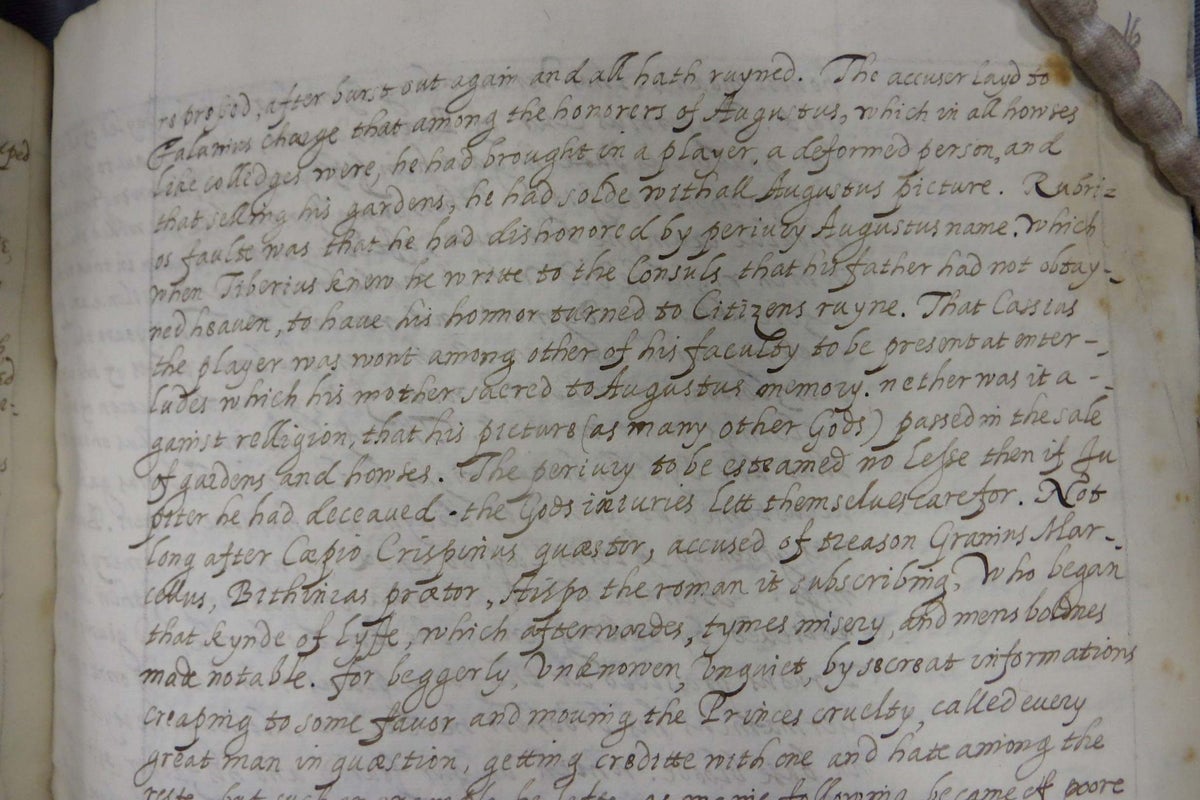 16
repressed, after burst out again and all hath ruyned. The accuser layd to
Falanius charge that among the honorers of Augustus, which in all howses
like colledges were, he had brought in a player, a deformed person, and
that selling his gardens, he had solde withall Augustus picture. Rubri=
os faulte was that he had dishonored by periury Augustus name. which
when Tiberius knew he write to the Consuls that his father had not obtay-
ned heaven, to have his honnor turned to Citizens ruyne. That Cassius
the player was wont among other of his faculty to be present at enter-
ludes which his mother sacred to Augustus memory. nether was it a-
gainst relligion, that his picture (as many other Gods) passed in the sale
of gardens and howses. The periury to be esteamed no lesse then if Ju
piter he had deceaved. the Gods iniuries lett themselves care for. Not
long after Cæpio Crispinus quæstor, accused of treason Granius Mar-
cellus, Bithinias prætor, Hispo the roman it subscribing, Who began
that kynde of lyffe, which afterwardes, tymes misery, and mens boldnes
made notable. for beggerly, Unknowen, Unquiet, by secreat informations
creaping to some favor and moving the Princes cruelty, called every
great man in quæstion, getting creditte with one and hate among the
reste, but such an example he lefte, as manie following became of poore